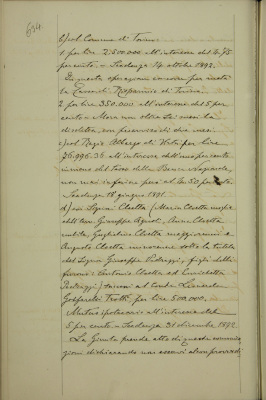 634.
b) col Comune di Torino
1. per lire 2.500.000 all'interesse del 4.75
per cento. - Scadenza 14 ottobre 1892.
In questa operazione concorre per metà
la Cassa di Risparmio di Torino.
2. per lire 350.000 all'interesse del 5 per
cento - Mora non oltre sei mesi ha
disdetta, con preavviso di due mesi.
c) col Regio Albergo di Virtù per lire
36.995.36 all'interesse dell'uno per cento
in meno del tasso della Banca Nazionale,
non mai inferiore però al 4.50 per cento.
Scadenza 18 giugno 1891.
d) coi Signori Cloetta (Maria Cloetta moglie
dell'Avv. Giuseppe Agnoli, Anna Cloetta
nubile, Guglielmo Cloetta maggiorenni e
Augusto Cloetta minorenne sotto la tutela
del Signor Giuseppe Pedraggi, figli della
furono Antonio Cloetta ed Enrichetta
Pedraggi) e coi
per lire 500.000.
Mutuo ipotecario all'interesse del
5 per cento - Scadenza 31 dicembre 1892.
La Giunta prende atto di queste comunica-
zioni dichiarando non esservi alcun provvedi-